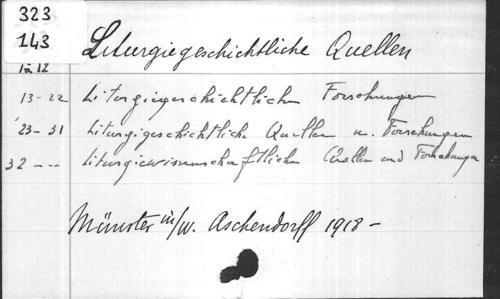 323
143
Liturgiegeschichtliche Quellen
1-12
13-22 Liturgiegeschichtliche Forschungen
23-31 Liturgiegeschichtliche Quellen u. Forschungen
32 -- Liturgiewissenschaftliche Quellen und Forschungen
Münster in/W. Aschendorff 1918 -